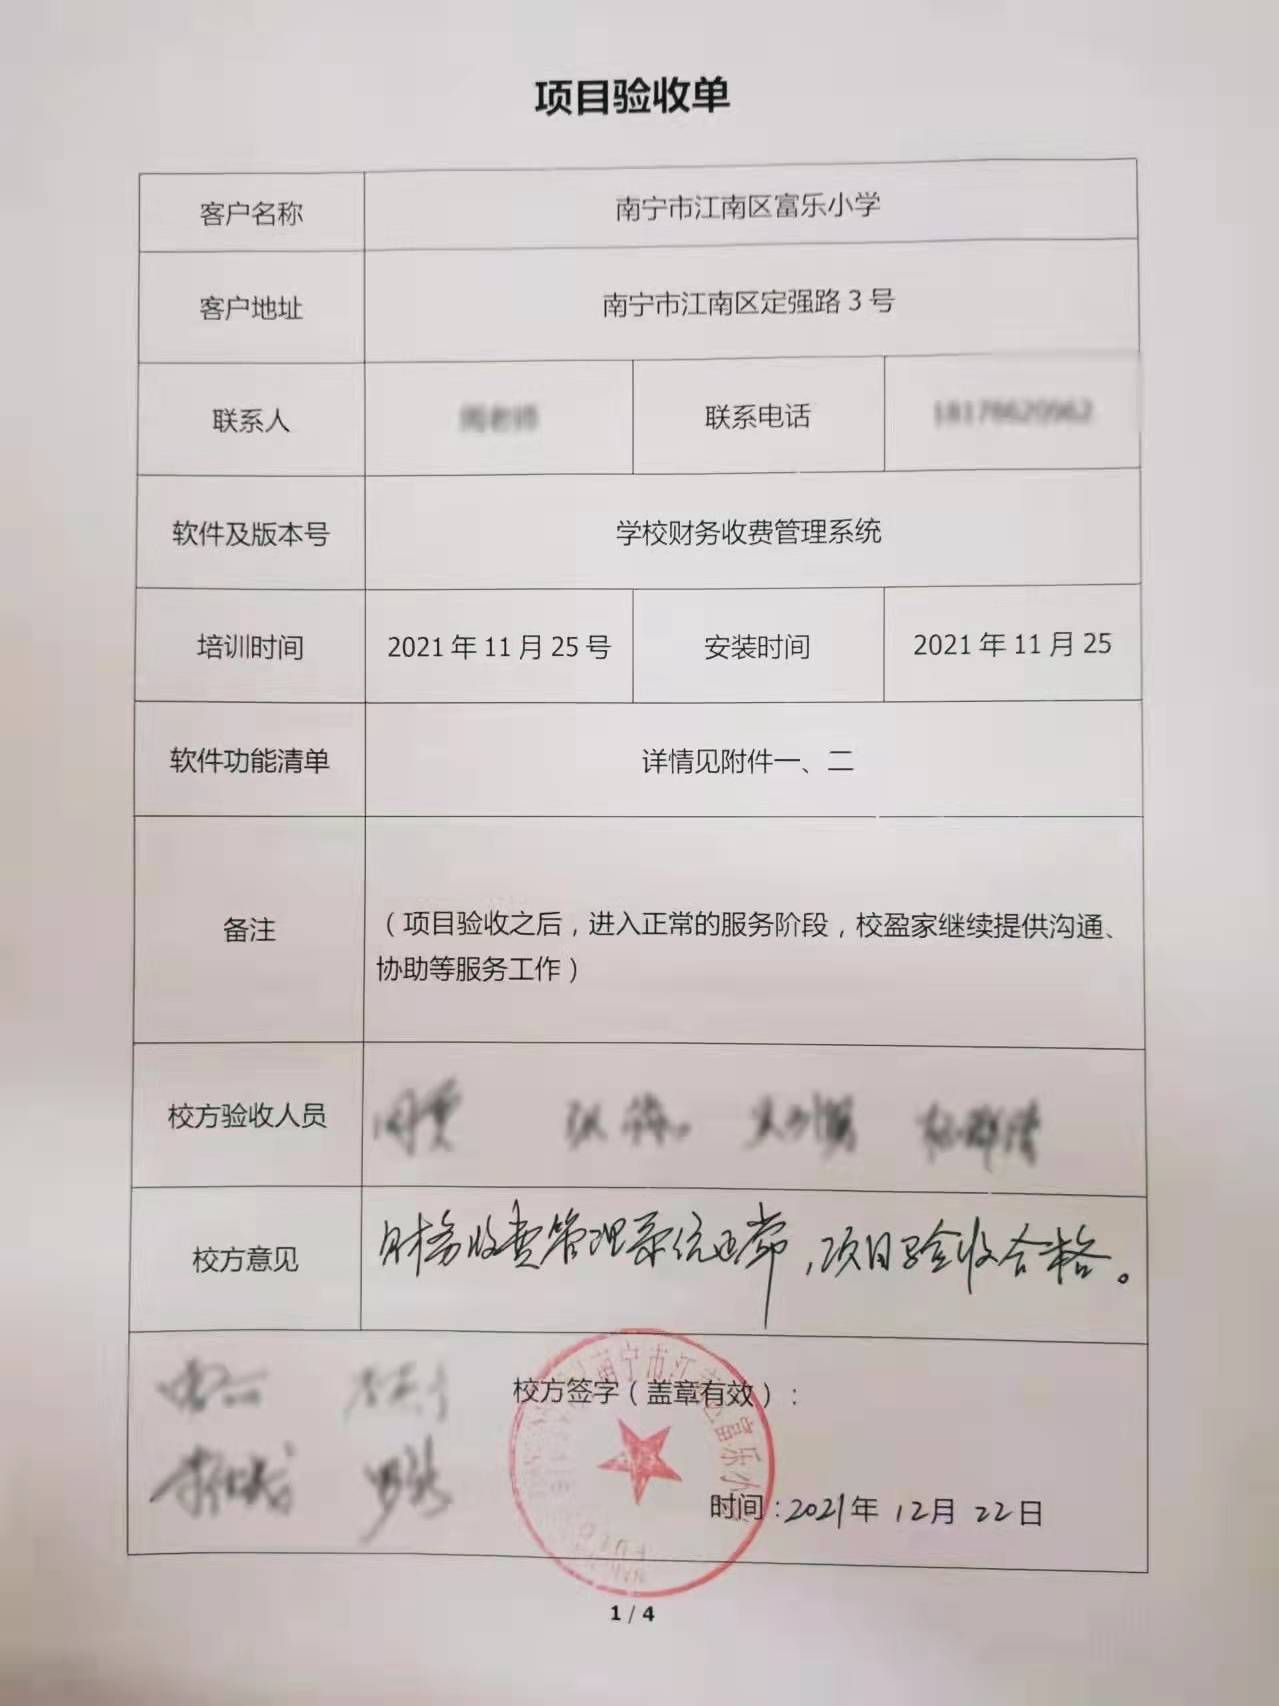 项目验收单
客户名称 南宁市江南区富乐小学
客户地址 南宁市江南区定强路 3 号
联系人 联系电话
软件及版本号 学校财务收费管理系统
培训时间 2021 年 11 月 25 号 安装时间 2021 年 11 月 25
软件功能清单 详情见附件一、二
备注 （项目验收之后，进入正常的服务阶段，校盈家继续提供沟通、
协助等服务工作）
校方验收人员
校方意见 财务收费管理系统正常，项目验收合格。
校方签字（盖章有效）：
南宁市江南区富乐小
时间：2021年 12月 22日
1 / 4